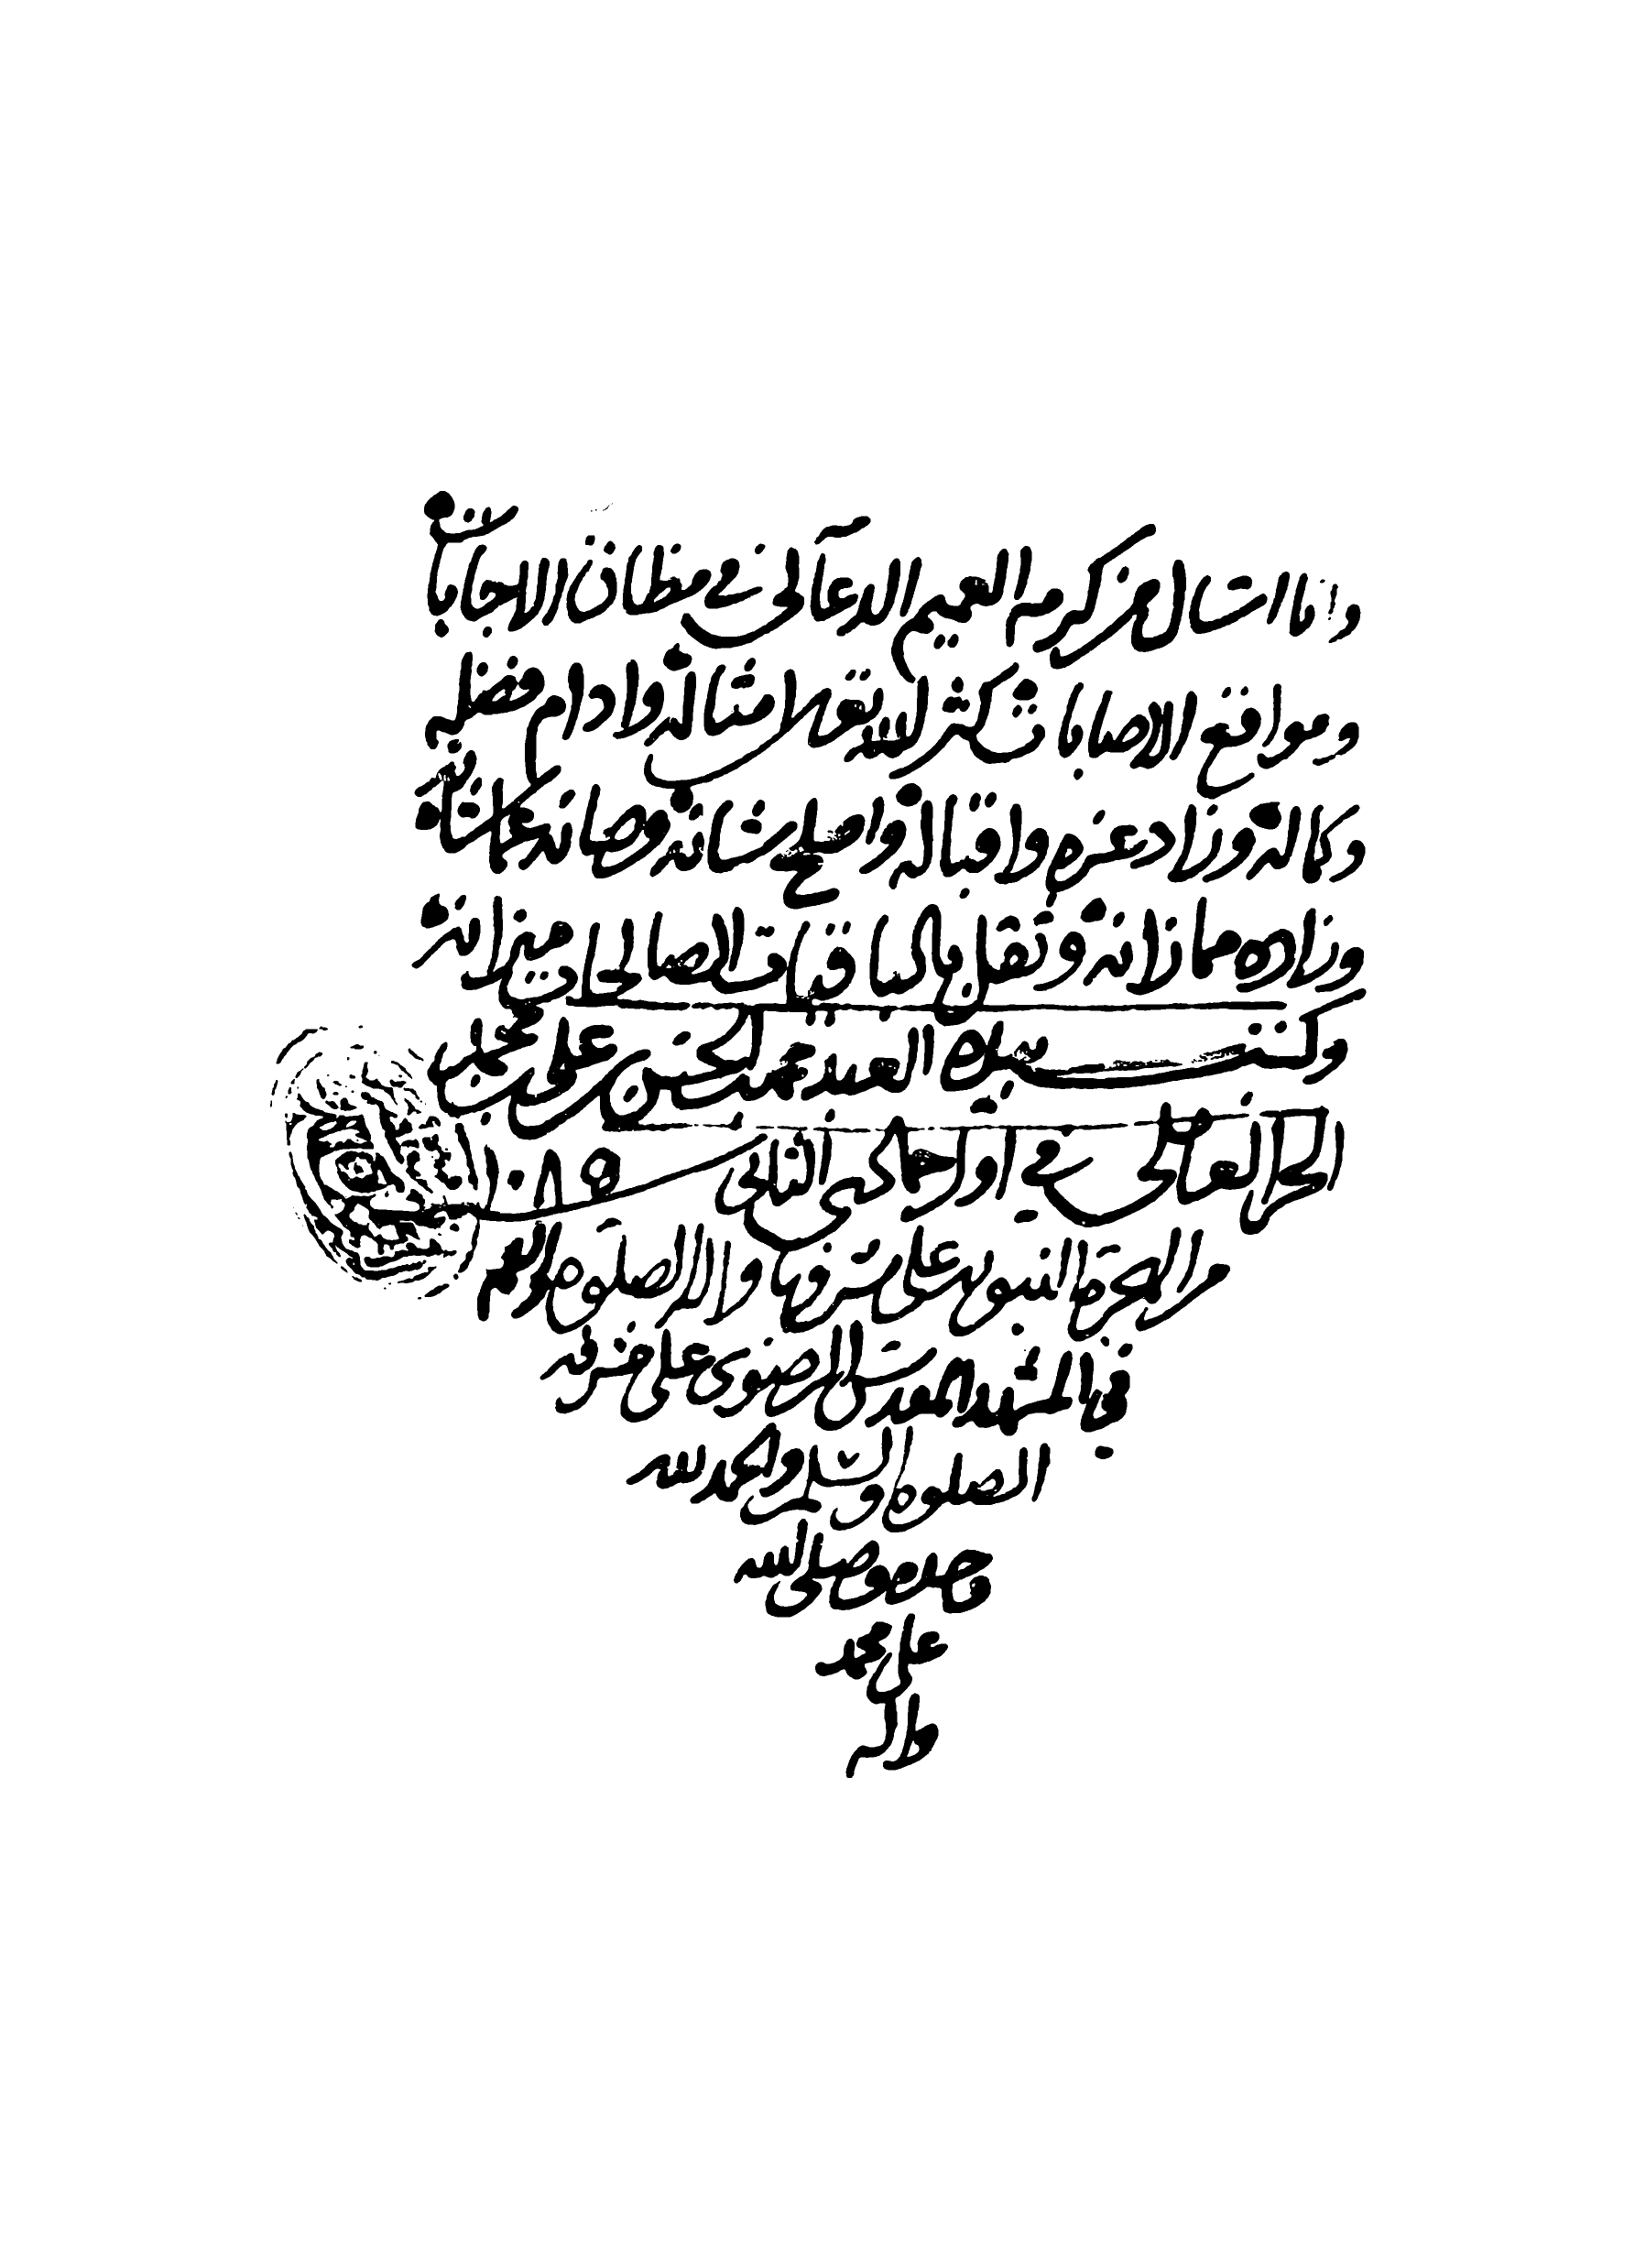 وانا اسال من كرمه العميم الدعآ لي في مظان الاجابات
ومواقع الاصابات كثر الله تعالى امثاله وادام فضله
وكماله وزاد عزه واقباله واصلح شانه وصانه عما شانه
وزاده مما زانه وثقل بالباقيات الصالحات ميزانه
وكتب بيده العبد محمد بن الحسن بن علي بن محمد
الحر العاملي في اواخر جمادى الثاني سنه ١٠٨٥
من الهجرة النبويه على مشرفها واله الصلوة والسلم
في المشهد المقدس الرضوي على مشرفه
الصلوة والسلم والحمد لله
وحده وصلى الله
على محمد
واله